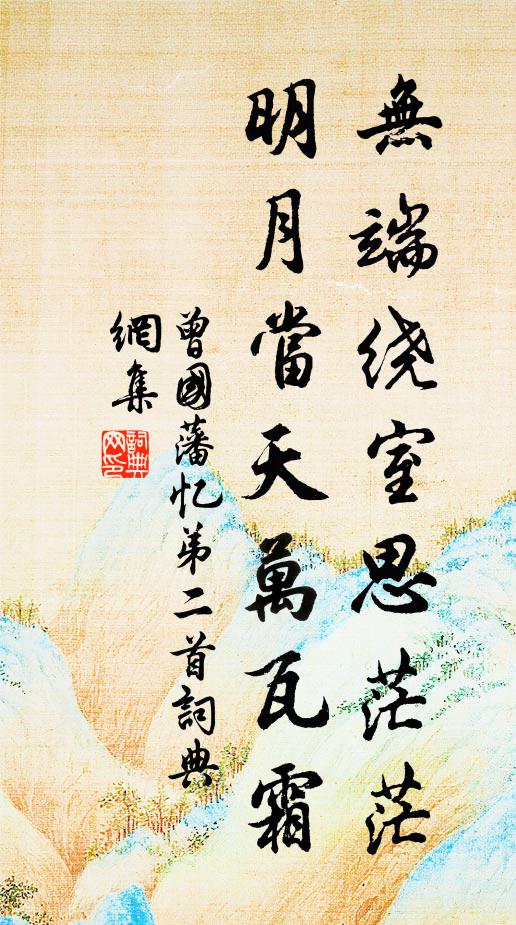 無端绕室思茫茫
明月當天萬瓦霜
曾國藩忆弟二首詞典
網集
詞典
网印